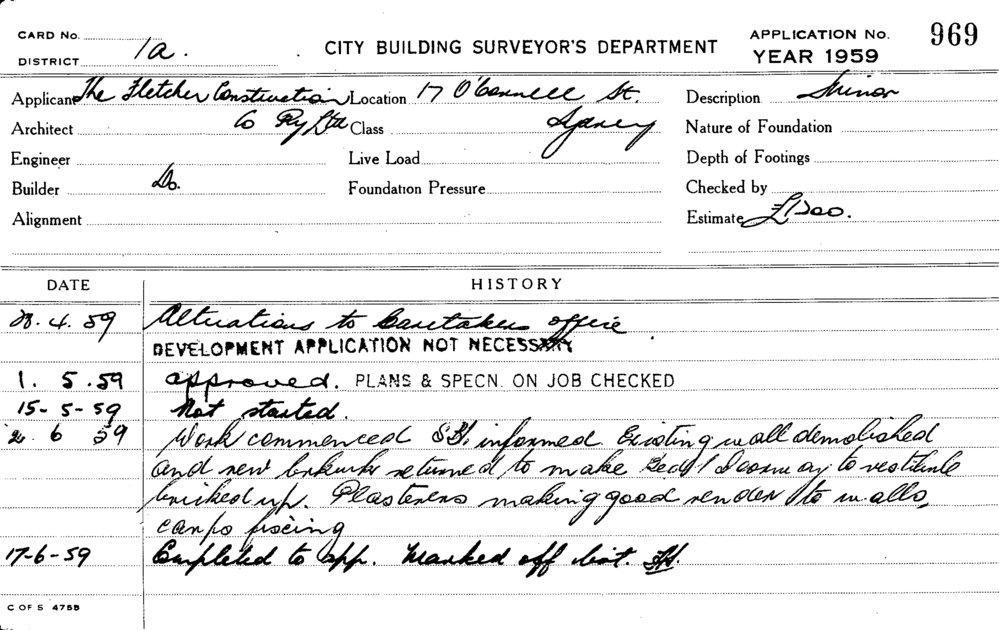 CARD No.
DISTRICT 1a.
CITY BUILDING SURVEYOR'S DEPARTMENT
APPLICATION No. 969
YEAR 1959
Applicant The Fletcher Construction Location 17 O'Connell St. Description Minor
Architect Co Pty Ltd Class Sydney Nature of Foundation
Engineer Live Load Depth of Footings
Builder Do. Foundation Pressure Checked by
Alignment Estimate
DATE HISTORY
4. 59 Alterations to Caretakers office
DEVELOPMENT APPLICATION NOT NECESSARY
1. 5. 59 approved. PLANS & SPECN. ON JOB CHECKED
15-5-59 Not started.
6 59 Work commenced informed. Existing wall demolished
and new returned to make Doorway to vestibule
bricked up. Plasterers making good render to walls,
fixing
17-6-59 Completed to app. Marked off list.
C OF S 475B